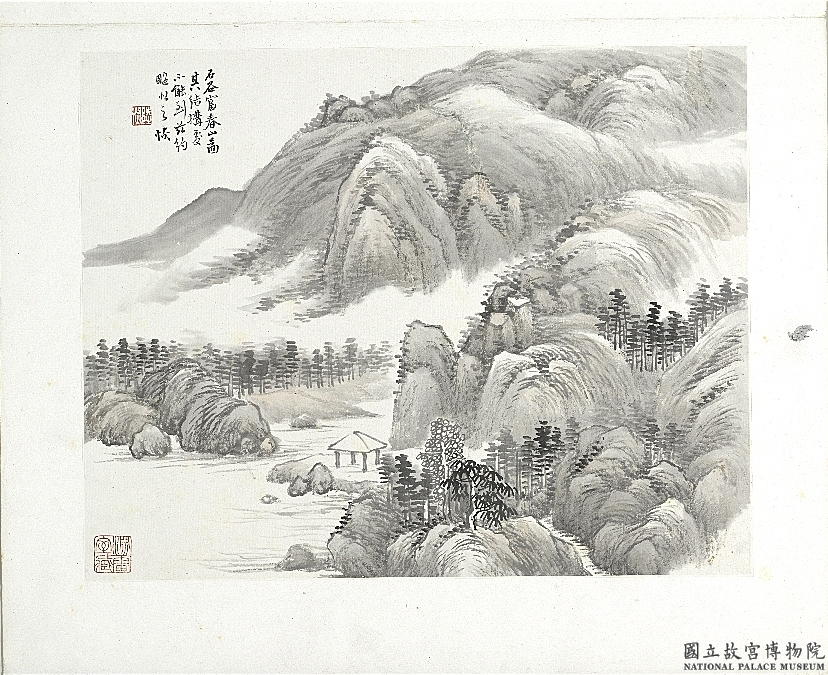 石谷富春山圖
其結搆處
不能到茲約
略之恢
國立故宮博物院
NATIONAL PALACE MUSEUM